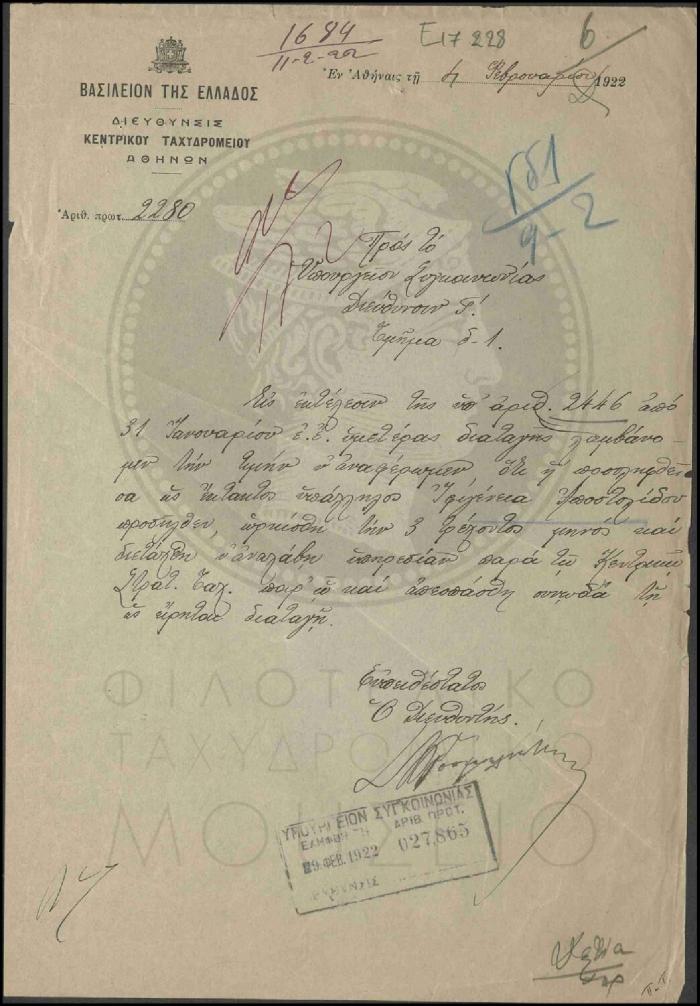 1684
11-2-22
Ε17 228
6
Ἐν Ἀθήναις τῇ 4 Φεβρουαρίου 1922
ΒΑΣΙΛΕΙΟΝ ΤΗΣ ΕΛΛΑΔΟΣ
ΔΙΕΥΘΥΝΣΙΣ
ΚΕΝΤΡΙΚΟΥ ΤΑΧΥΔΡΟΜΕΙΟΥ
ΑΘΗΝΩΝ
Ἀριθ. πρωτ. 2280
Γδ1
9-2
Πρὸς τὸ
Ὑπουργεῖον Συγκοινωνίας
Διεύθυνσιν Γ΄.
Τμῆμα δ-1.
Εἰς ἐκτέλεσιν τῆς ὑπ' ἀριθ. 2446 ἀπὸ
31 Ἰανουαρίου ἐ.ἔ. ὑμετέρας διαταγῆς λαμβάνο-
μεν τὴν τιμὴν ν' ἀναφέρωμεν ὅτι ἡ προσληφθεῖ-
σα ὡς ἔκτακτος ὑπάλληλος Ἰφιγένεια Ἀποστολίδου
προσῆλθεν, ὡρκίσθη τὴν 3 τρέχοντος μηνὸς καὶ
διετάχθη ν' ἀναλάβῃ ὑπηρεσίαν παρὰ τῷ Κεντρικῷ
Στρατ. Ταχ. παρ' ᾧ καὶ ἀπεσπάσθη συνῳδὰ τῇ
ὡς εἴρηται διαταγῇ.
Εὐπειθέστατος
Ὁ Διευθυντής.
ΥΠΟΥΡΓΕΙΟΝ ΣΥΓΚΟΙΝΩΝΙΑΣ
ΕΛΗΦΘΗ ΤΗ ΑΡΙΘ. ΠΡΩΤ.
9 ΦΕΒ. 1922 027,865
ΦΙΛΟΤΕΛΙΚΟ
ΤΑΧΥΔΡΟΜΙΚΟ
ΜΟΥΣΕΙΟ